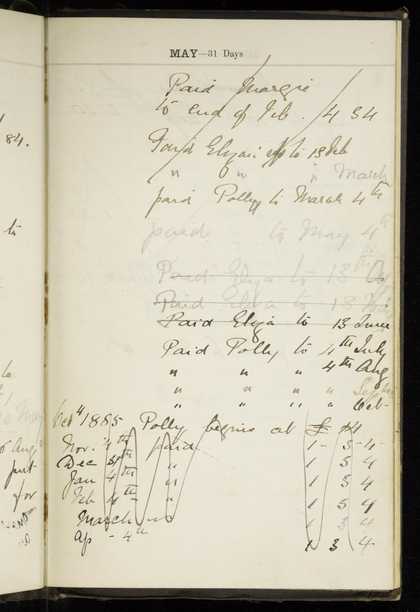 84.
to
MAY—31 Days
Paid Margie
to end of Feb. /4 84
Paid Eliza up to 13 Feb
" " " March
paid Polly to March 4th
paid to May 4th
Paid Eliza to 13th
Paid Eliza to 13
Paid Eliza to 13 June
Paid Polly to 4th July
" " " 4th Aug
" " " " Sept
" " " " Oct
Oct 4/1885 Polly begins at £ 14
Nov. 4th paid 1 - 3 - 4 -
Dec 4th " 1 3 4
Jan 4th " 1 3 4
Feb 4th " 1 3 4
March " 1 3 4
Ap - 4th 1 3 4